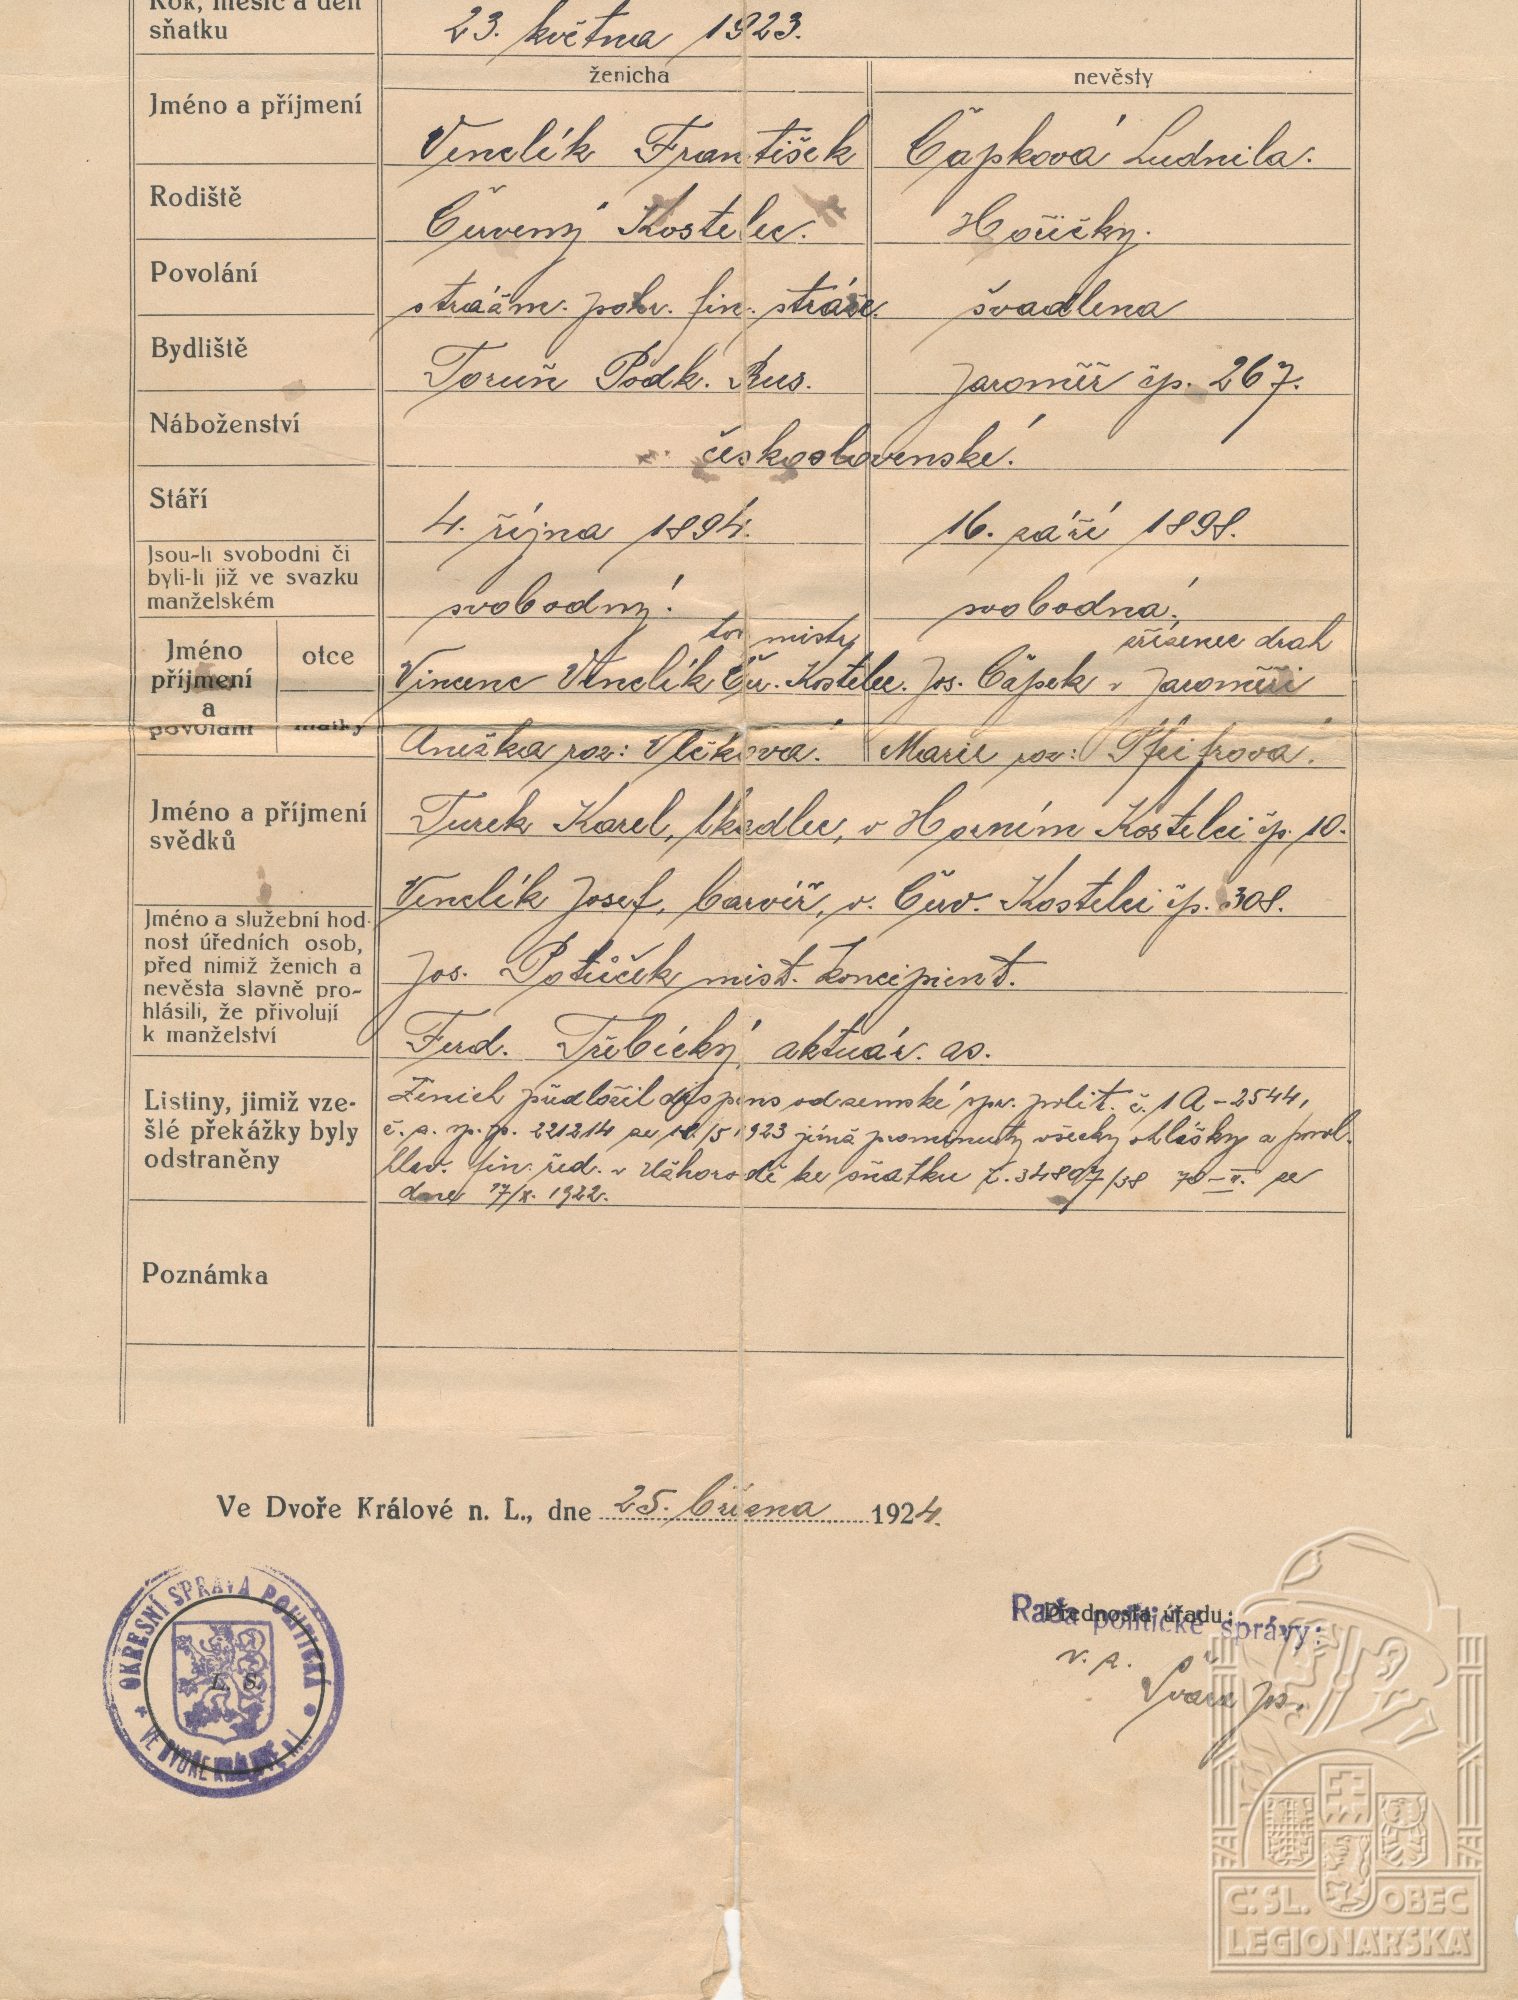 Rok, měsíc a den
sňatku
23. května 1923.
ženicha nevěsty
Jméno a příjmení
Venclík František Čápková Ludmila.
Rodiště
Červený Kostelec. Hořičky.
Povolání
strážm. pohr. fin. stráže. švadlena
Bydliště
Toruň Podk. Rus. Jaroměř čp. 267.
Náboženství
československé.
Stáří
4. října 1894. 16. září 1898.
Jsou-li svobodni či
byli-li již ve svazku
manželském
svobodný. svobodná.
Jméno
příjmení
a
povolání
otce
tov. mistr, zřízenec drah
Vincenc Venclík Čer. Kostelec. Jos. Čápek v Jaroměři
matky
Anežka roz: Vlčková. Marie roz: Pfeifrová.
Jméno a příjmení
svědků
Turek Karel, tkadlec, v Horním Kostelci čp. 10.
Venclík Josef, barvíř, v. Červ. Kostelci čp. 308.
Jméno a služební hod-
nost úředních osob,
před nimiž ženich a
nevěsta slavně pro-
hlásili, že přivolují
k manželství
Jos. Potůček míst. koncipient.
Ferd. Třebický, aktuár. as.
Listiny, jimiž vze-
šlé překážky byly
odstraněny
Ženich předložil dispens od zemské spr. polit. č. 1A-2544,
č. z. s. p. 221214 ze /5 1923 jímž prominuty všecky ohlášky a povol.
hlav. fin. řed. v Užhorodě ke sňatku č. 34897/38 ze
dne 17/X. 1922.
Poznámka
Ve Dvoře Králové n. L., dne 25. března 1924.
OKRESNÍ SPRÁVA POLITICKÁ
VE DVOŘE KRÁLOVÉ n. L.
L. S.
Přednosta úřadu:
Rada politické správy:
v. z.
Jos.
Č.SL. OBEC
LEGIONÁŘSKÁ